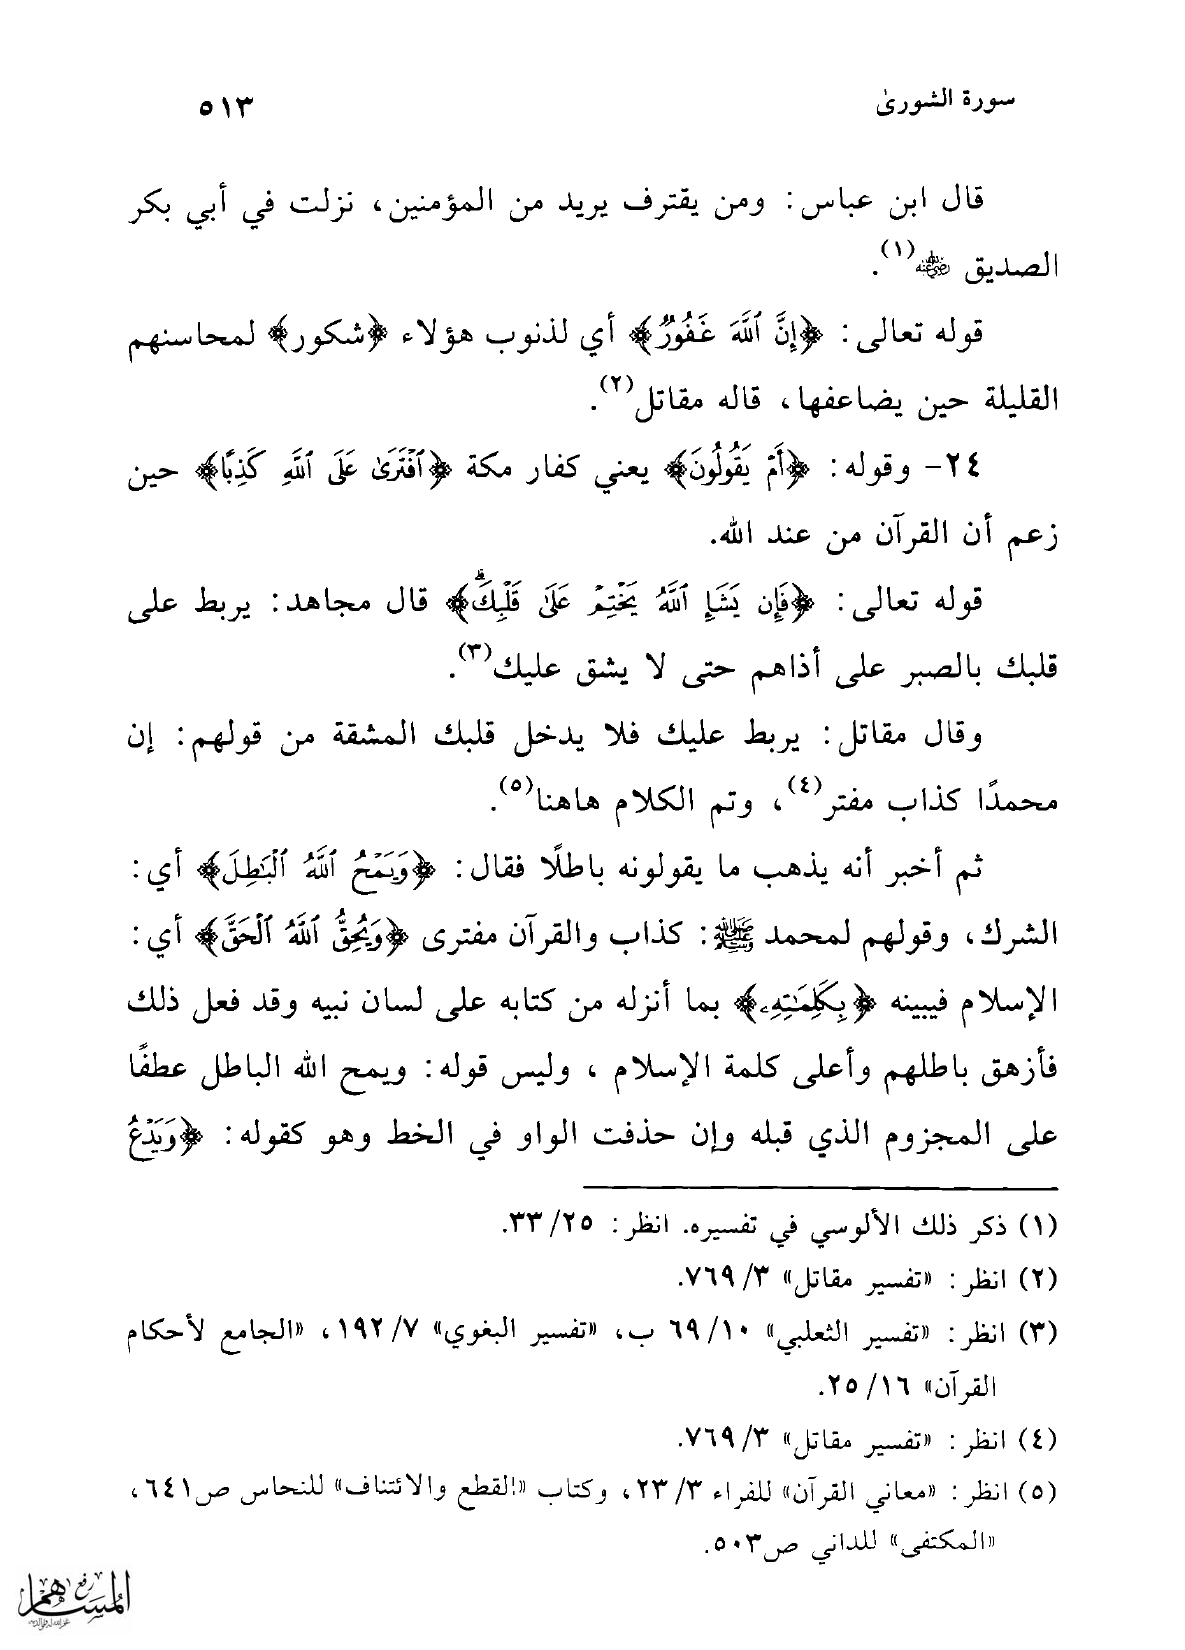 سورة الشورىٰ ٥١٣
قال ابن عباس: ومن يقترف يريد من المؤمنين، نزلت في أبي بكر
الصديق رضي الله عنه(١).
قوله تعالى: ﴿إِنَّ ٱللَّهَ غَفُورٌ﴾ أي لذنوب هؤلاء ﴿شكور﴾ لمحاسنهم
القليلة حين يضاعفها، قاله مقاتل(٢).
٢٤- وقوله: ﴿أَمْ يَقُولُونَ﴾ يعني كفار مكة ﴿ٱفْتَرَىٰ عَلَى ٱللَّهِ كَذِبًا﴾ حين
زعم أن القرآن من عند الله.
قوله تعالى: ﴿فَإِن يَشَإِ ٱللَّهُ يَخْتِمْ عَلَىٰ قَلْبِكَ ۗ﴾ قال مجاهد: يربط على
قلبك بالصبر على أذاهم حتى لا يشق عليك(٣).
وقال مقاتل: يربط عليك فلا يدخل قلبك المشقة من قولهم: إن
محمدًا كذاب مفتر(٤)، وتم الكلام هاهنا(٥).
ثم أخبر أنه يذهب ما يقولونه باطلًا فقال: ﴿وَيَمْحُ ٱللَّهُ ٱلْبَٰطِلَ﴾ أي:
الشرك، وقولهم لمحمد ﷺ: كذاب والقرآن مفترى ﴿وَيُحِقُّ ٱللَّهُ ٱلْحَقَّ﴾ أي:
الإسلام فيبينه ﴿بِكَلِمَٰتِهِۦ﴾ بما أنزله من كتابه على لسان نبيه وقد فعل ذلك
فأزهق باطلهم وأعلى كلمة الإسلام ، وليس قوله: ويمح الله الباطل عطفًا
على المجزوم الذي قبله وإن حذفت الواو في الخط وهو كقوله: ﴿وَيَدْعُ
(١) ذكر ذلك الألوسي في تفسيره. انظر: ٢٥/ ٣٣.
(٢) انظر: «تفسير مقاتل» ٣/ ٧٦٩.
(٣) انظر: «تفسير الثعلبي» ١٠/ ٦٩ ب، «تفسير البغوي» ٧/ ١٩٢، «الجامع لأحكام
القرآن» ١٦/ ٢٥.
(٤) انظر: «تفسير مقاتل» ٣/ ٧٦٩.
(٥) انظر: «معاني القرآن» للفراء ٣/ ٢٣، وكتاب «القطع والائتناف» للنحاس ص٦٤١،
«المكتفى» للداني ص٥٠٣.
رفع
المساهم